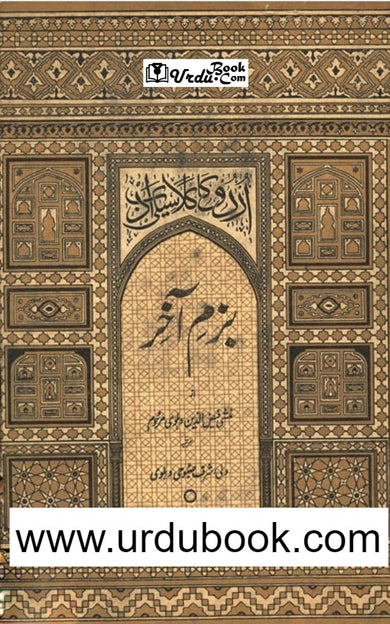 Urdu Book .Com
اردو کا کلاسیکی ادب
بزمِ آخر
از
منشی فیض الدین دہلوی مرحوم
مرتبہ
ولی اشرف صبوحی دہلوی
www.urdubook.com